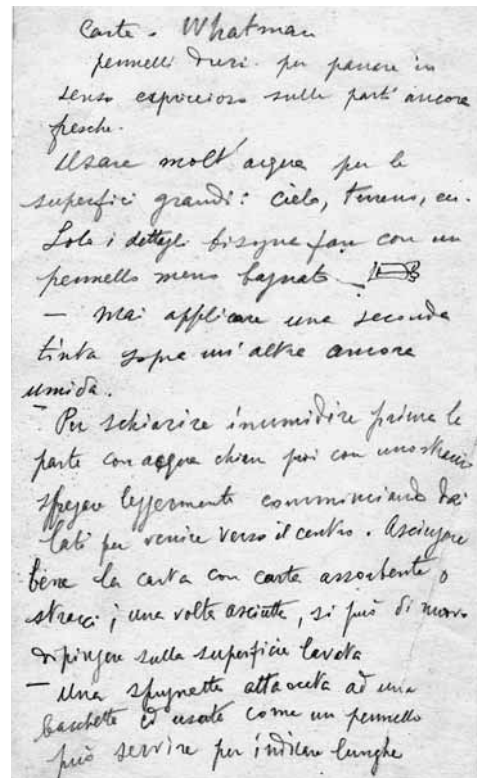 Carta - Whatman
pennelli duri - per passare in
senso capriccioso sulle parti ancora
fresche.
Usare molt'acqua per le
superfici grandi: cielo, terreno, ecc.
Solo i dettagli bisogna fare con un
pennello meno bagnato
- Mai applicare una seconda
tinta sopra un'altra ancora
umida.
- Per schiarire inumidire prima la
parte con acqua chiara poi con uno straccio
sfregare leggermente cominciando dai
lati per venire verso il centro. Asciugare
bene la carta con carta assorbente o
stracci; una volta asciutta, si può di nuovo
dipingere sulla superficie lavata
- Una spugnetta attaccata ad una
bacchetta ed usata come un pennello
può servire per indicare lunghe